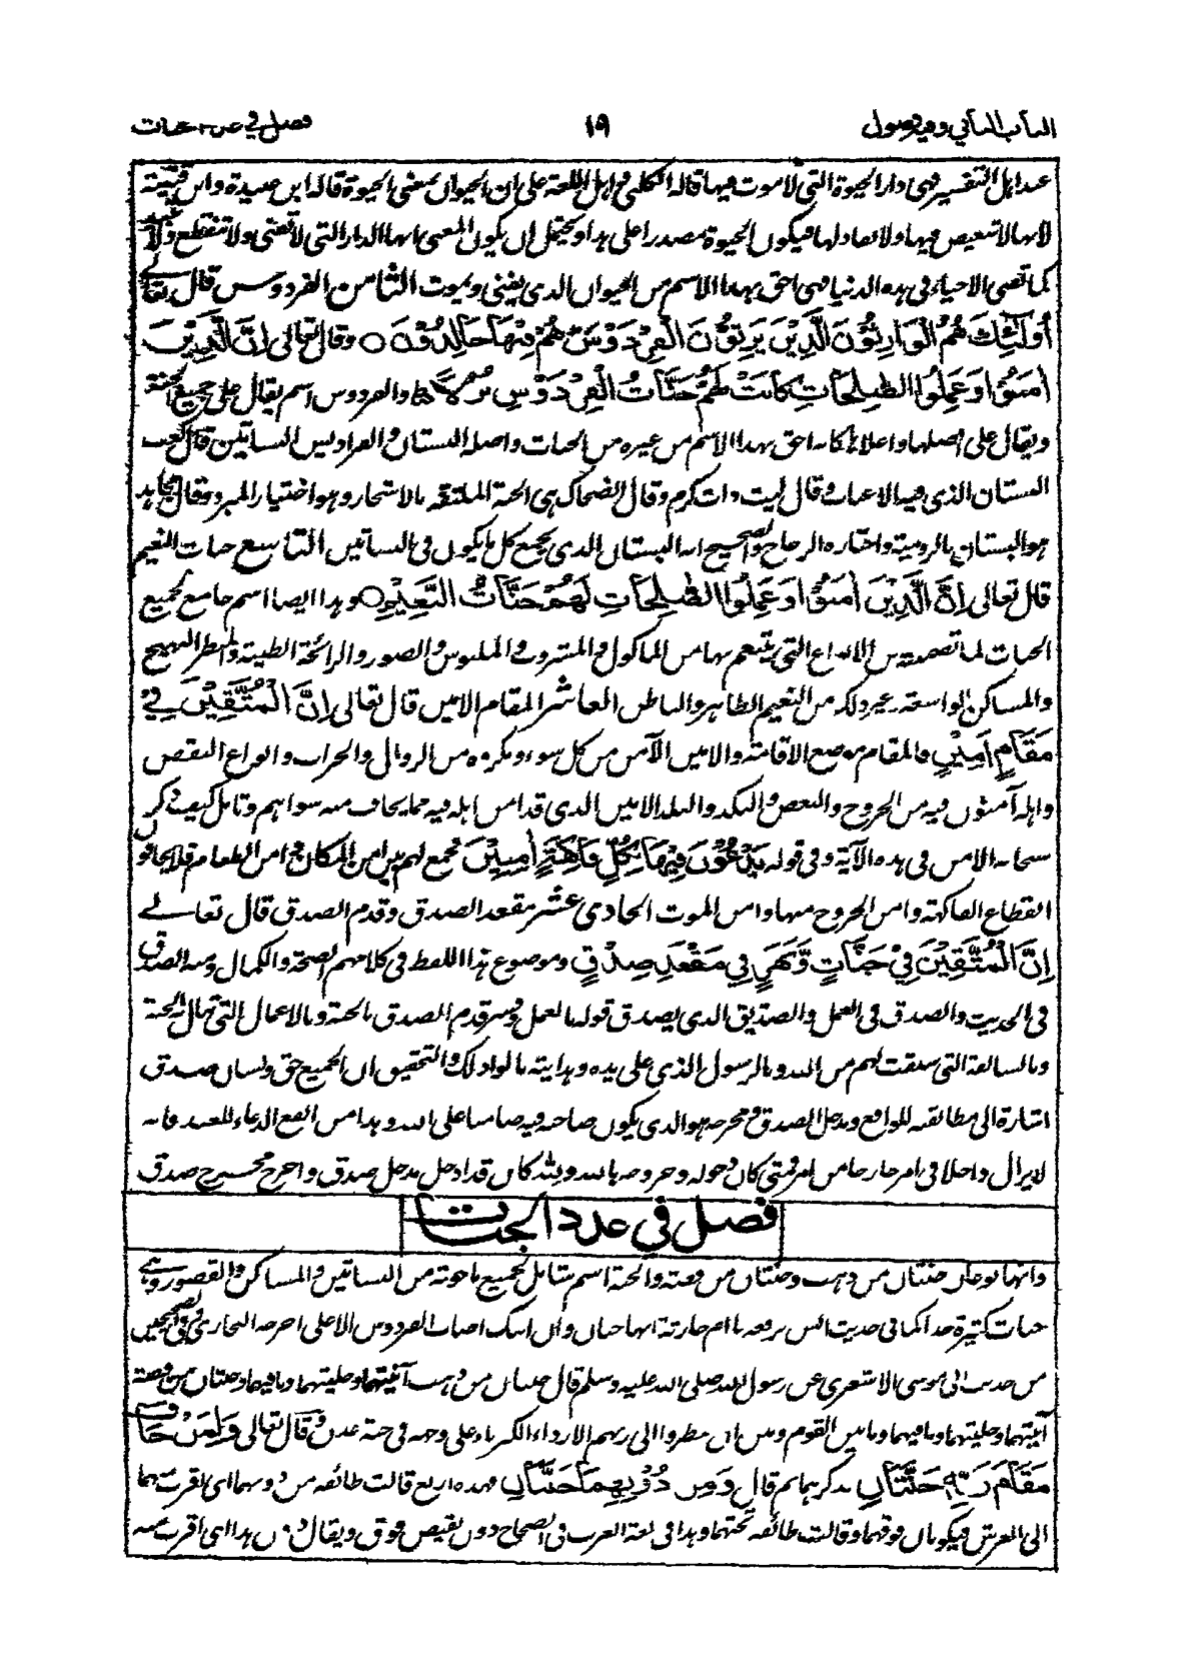 الباب الثاني وفيه فصول ١٩ فصل في عدد جنات
عند اهل التفسير فهي دار الحيوة التي لا موت فيها قاله الكلبي واهل اللغة على ان الحيوان بمعنى الحيوة قاله ابن عبيدة وابن قتيبة
لانها لا تنغيص فيها ولا نفاد لها فيكون الحيوة مصدرا على هذا ويحتمل ان يكون المعنى انها الدار التي لا تفنى ولا تنقطع ولا تبيد
كما تفنى الاحياء في هذه الدنيا فهي احق بهذا الاسم من الحيوان الذي يفنى ويموت الثامن الفردوس قال تعالى
أُولَٰئِكَ هُمُ الْوَارِثُونَ الَّذِينَ يَرِثُونَ الْفِرْدَوْسَ هُمْ فِيْهَا خَالِدُوْنَ ○ وقال تعالى اِنَّ الَّذِيْنَ
اٰمَنُوْا وَعَمِلُوا الصّٰلِحٰتِ كَانَتْ لَهُمْ جَنَّاتُ الْفِرْدَوْسِ نُزُلًا ط والفردوس اسم يقال على جميع الجنة
ويقال على افضلها واعلاها كانه احق بهذا الاسم من غيره من الجنات واصله البستان والفراديس البساتين قال كعب
البستان الذي فيه الاعناب وقال ليث ذات كرم وقال الضحاك هي الجنة الملتفة بالاشجار وهو اختيار المبرد وقال مجاهد
هو البستان بالرومية واختاره الزجاج والصحيح انه البستان الذي يجمع كل ما يكون في البساتين التاسع جنات النعيم
قال تعالى اِنَّ الَّذِيْنَ اٰمَنُوْا وَعَمِلُوا الصّٰلِحٰتِ لَهُمْ جَنَّاتُ النَّعِيْمِ ○ وهذا ايضا اسم جامع لجميع
الجنات لما تضمنته من الانواع التي يتنعم بها من الماكول والمشروب والملبوس والصور والرائحة الطيبة والمنظر البهيج
والمساكن الواسعة وغير ذلك من النعيم الظاهر والباطن العاشر المقام الامين قال تعالى اِنَّ الْمُتَّقِيْنَ فِيْ
مَقَامٍ اَمِيْنٍ والمقام موضع الاقامة والامين الآمن من كل سوء ومكروه من الزوال والخراب وانواع النقص
واهله آمنون فيه من الخروج والنغص والنكد والبلد الامين الذي قد امن اهله فيه مما يخاف منه سواهم وتامل كيف ذكر
سبحانه الامن في هذه الآية وفي قوله يَدْعُوْنَ فِيْهَا بِكُلِّ فَاكِهَةٍ اٰمِنِيْنَ فجمع لهم بين امن المكان وامن الطعام فلا يخافون
انقطاع الفاكهة وامن الخروج منها وامن الموت الحادي عشر مقعد الصدق وقدم الصدق قال تعالى
اِنَّ الْمُتَّقِيْنَ فِيْ جَنَّاتٍ وَّنَهَرٍ فِيْ مَقْعَدِ صِدْقٍ وموضوع هذا اللفظ في كلامهم الصحة والكمال ومنه الصدق
في الحديث والصدق في العمل والصديق الذي يصدق قوله بالعمل وفسر قدم الصدق بالجنة وبالاعمال التي تنال به الجنة
وبالسابقة التي سبقت لهم من الله وبالرسول الذي على يده وهدايته نالوا ذلك والتحقيق ان الجميع حق ولسان صدق
اشارة الى مطابقته للواقع ومدخل الصدق ومخرجه هو الذي يكون صاحبه فيه ضامنا على الله وهذا من انفع الدعاء للعبد فانه
لا يزال داخلا في امر خارجا من امر فمتى كان دخوله وخروجه بالله ولله كان قد ادخل مدخل صدق واخرج مخرج صدق
فصل في عدد الجنات
وانها نوعان جنتان من ذهب وجنتان من فضة والجنة اسم شامل لجميع ما حوته من البساتين والمساكن والقصور وهي
جنات كثيرة جدا كما في حديث انس يرفعه يا ام حارثة انها جنان وان ابنك اصاب الفردوس الاعلى اخرجه البخاري وفي الصحيحين
من حديث ابي موسى الاشعري عن رسول الله صلى الله عليه وسلم قال جنتان من ذهب آنيتهما وحليتهما وما فيهما وجنتان من فضة
آنيتهما وحليتهما وما فيهما وما بين القوم وبين ان ينظروا الى ربهم الا رداء الكبرياء على وجهه في جنة عدن وقال تعالى وَلِمَنْ خَافَ
مَقَامَ رَبِّهٖ جَنَّتٰانِ فذكرهما ثم قال وَمِنْ دُوْنِهِمَا جَنَّتَانِ فهذه اربع قالت طائفة من دونهما اي اقرب منهما
الى العرش فيكونان فوقهما وقالت طائفة تحتهما وهذا في لغة العرب في الصحاح دون نقيض فوق ويقال دون هذا اي اقرب منه